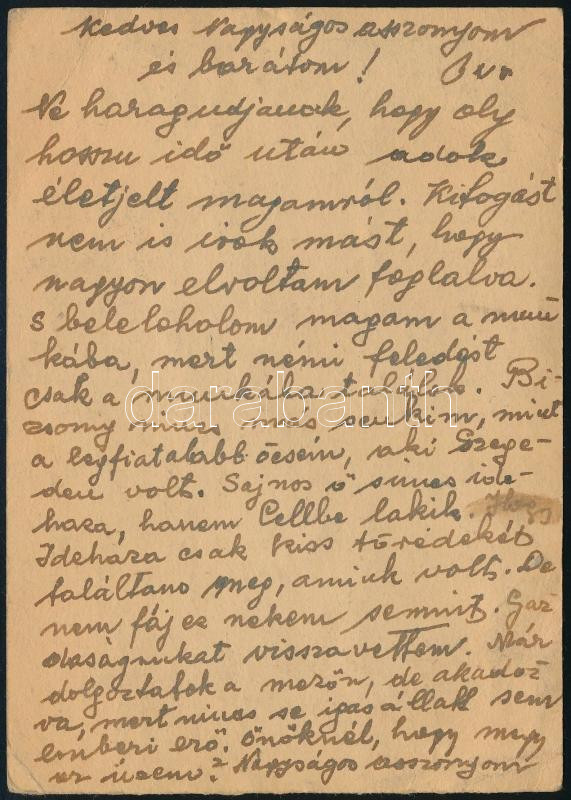 Kedves Nagyságos asszonyom
és barátom!
Ne haragudjanak, hogy oly
hosszu idő után adok
életjelt magamról. Kifogást
nem is irok mást, hogy
nagyon elvoltam foglalva.
S beleloholom magam a mun
kába, mert némi feledést
csak a munkába találok. Bi-
zony nincs más senkim, mint
a legfiatalabb öcsém, aki Szege-
den volt. Sajnos ő sincs ide-
haza, hanem Cellbe lakik.
Ideháza csak kiss töredékét
találtam meg, amink volt. De
nem fáj ez nekem semmit. Gaz
daságunkat visszavettem. Már
dolgoztatok a mezőn, de akadoz
va, mert nincs se igasállatt sem
emberi erő. Önöknél, hogy megy
az üzem? Nagyságos asszonyom
darabanth